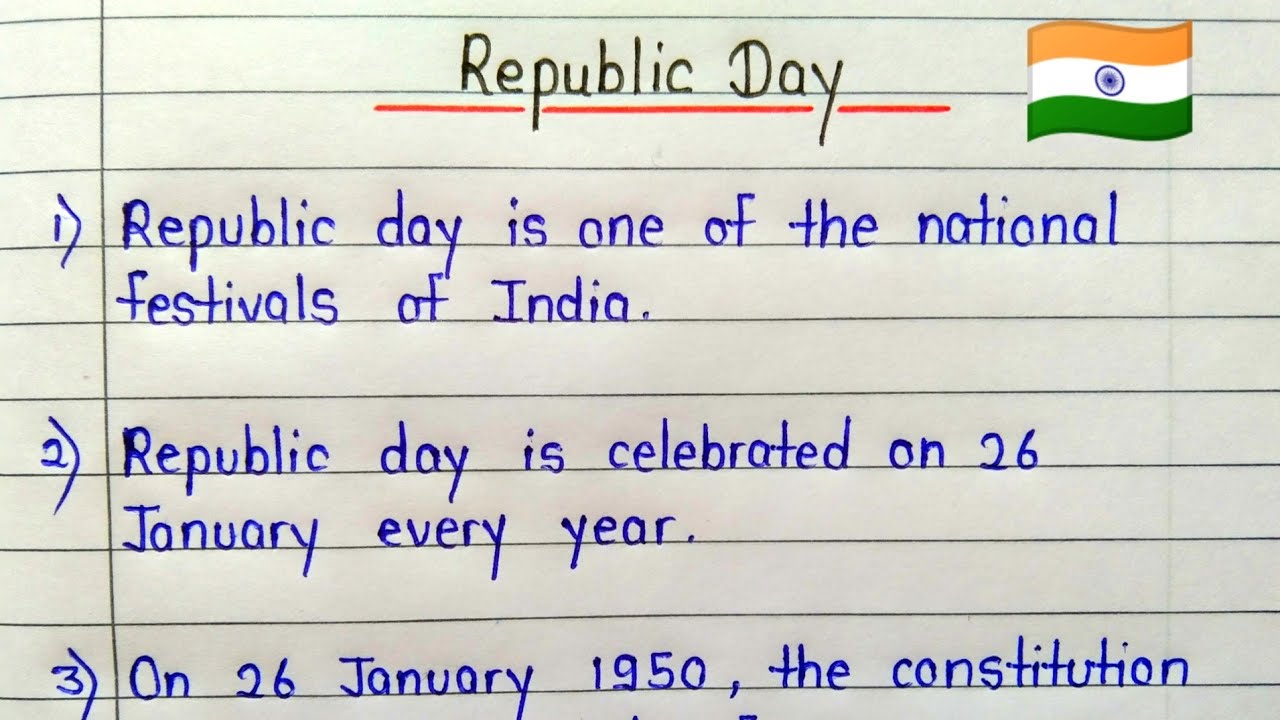 Republic Day
1) Republic day is one of the national
festivals of India.
2) Republic day is celebrated on 26
January every year.
3) On 26 January 1950, the constitution